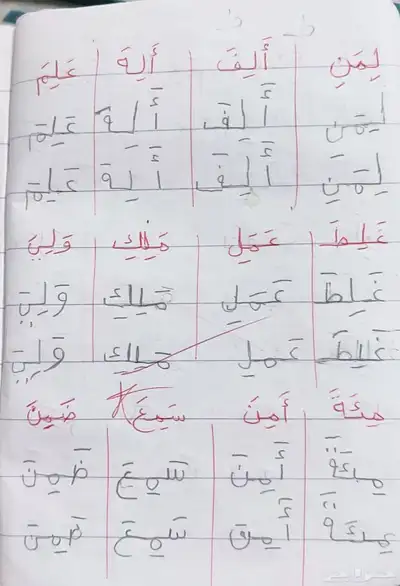 لِمَنِ أَلِفَ أَلِهَ عَلِمَ
لِمَنِ أَلِفَ أَلِهَ عَلِمَ
لِمَنِ أَلِفَ أَلِهَ عَلِمَ
غَلِطَ عَمَلِ مَلِكِ وَلِيَ
غَلِطَ عَمَلِ مَلِكِ وَلِيَ
غَلِطَ عَمَلِ مَلِكِ وَلِيَ
مِئَةَ أَمِنَ سَمِعَ ضَمِنَ
مِئَةً أَمِنَ سَمِعَ ضَمِنَ
مِئَةً أَمِنَ سَمِعَ ضَمِنَ